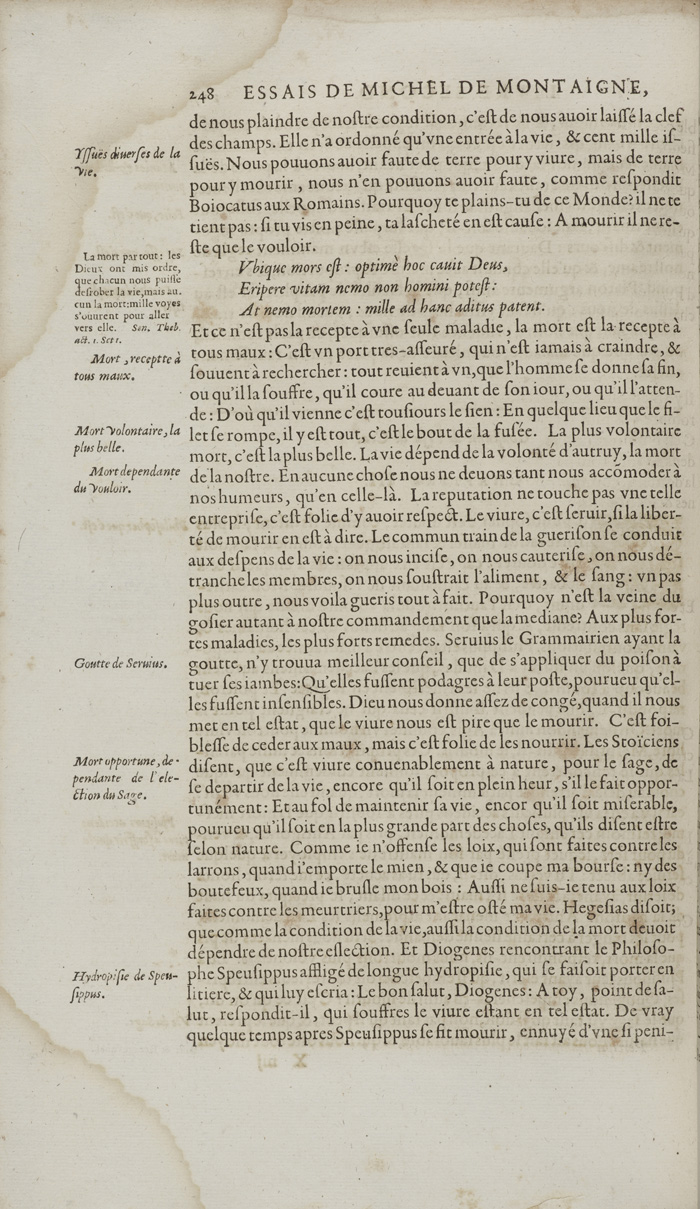 248 ESSAIS DE MICHEL DE MONTAIGNE,
de nous plaindre de noſtre condition, c'eſt de nous auoir laiſſé la clef
des champs. Elle n'a ordonné qu'vne entrée à la vie, & cent mille iſ-
ſuës. Nous pouuons auoir faute de terre pour y viure, mais de terre
pour y mourir, nous n'en pouuons auoir faute, comme reſpondit
Boiocatus aux Romains. Pourquoy te plains-tu de ce Monde? il ne te
tient pas: ſi tu vis en peine, ta laſcheté en eſt cauſe: A mourir il ne re-
ſte que le vouloir.
Vbique mors eſt: optimè hoc cauit Deus,
Eripere vitam nemo non homini poteſt:
At nemo mortem: mille ad hanc aditus patent.
Et ce n'eſt pas la recepte à vne ſeule maladie, la mort eſt la recepte à
tous maux: C'eſt vn port tres-aſſeuré, qui n'eſt iamais à craindre, &
ſouuent à rechercher: tout reuient à vn, que l'homme ſe donne ſa fin,
ou qu'il la ſouffre, qu'il coure au deuant de ſon iour, ou qu'il l'atten-
de: D'où qu'il vienne c'eſt touſiours le ſien: En quelque lieu que le fi-
let ſe rompe, il y eſt tout, c'eſt le bout de la fuſée. La plus volontaire
mort, c'eſt la plus belle. La vie dépend de la volonté d'autruy, la mort
de la noſtre. En aucune choſe nous ne deuons tant nous accõmoder à
nos humeurs, qu'en celle-là. La reputation ne touche pas vne telle
entrepriſe, c'eſt folie d'y auoir reſpect. Le viure, c'eſt ſeruir, ſi la liber-
té de mourir en eſt à dire. Le commun train de la gueriſon ſe conduit
aux deſpens de la vie: on nous inciſe, on nous cauteriſe, on nous dé-
tranche les membres, on nous ſouſtrait l'aliment, & le ſang: vn pas
plus outre, nous voila gueris tout à fait. Pourquoy n'eſt la veine du
goſier autant à noſtre commandement que la mediane? Aux plus for-
tes maladies, les plus forts remedes. Seruius le Grammairien ayant la
goutte, n'y trouua meilleur conſeil, que de s'appliquer du poiſon à
tuer ſes iambes: Qu'elles fuſſent podagres à leur poſte, pourueu qu'el-
les fuſſent inſenſibles. Dieu nous donne aſſez de congé, quand il nous
met en tel eſtat, que le viure nous eſt pire que le mourir. C'eſt foi-
bleſſe de ceder aux maux, mais c'eſt folie de les nourrir. Les Stoïciens
diſent, que c'eſt viure conuenablement à nature, pour le ſage, de
ſe departir de la vie, encore qu'il ſoit en plein heur, s'il le fait oppor-
tunément: Et au fol de maintenir ſa vie, encor qu'il ſoit miſerable,
pourueu qu'il ſoit en la plus grande part des choſes, qu'ils diſent eſtre
ſelon nature. Comme ie n'offenſe les loix, qui ſont faites contre les
larrons, quand i'emporte le mien, & que ie coupe ma bourſe: ny des
boutefeux, quand ie bruſle mon bois: Auſſi ne ſuis-ie tenu aux loix
faites contre les meurtriers, pour m'eſtre oſté ma vie. Hegeſias diſoit;
que comme la condition de la vie, auſſi la condition de la mort deuoit
dépendre de noſtre eſlection. Et Diogenes rencontrant le Philoſo-
phe Speuſippus affligé de longue hydropiſie, qui ſe faiſoit porter en
litiere, & qui luy eſcria: Le bon ſalut, Diogenes: A toy, point de ſa-
lut, reſpondit-il, qui ſouffres le viure eſtant en tel eſtat. De vray
quelque temps apres Speuſippus ſe fit mourir, ennuyé d'vne ſi peni-
Yſſuës diuerſes de la
vie.
La mort par tout: les
Dieux ont mis ordre,
que chacun nous puiſſe
deſrober la vie, mais au-
cun la mort: mille voyes
s'ouurent pour aller
vers elle. Sen. Theb.
act. 1. Sc. 1.
Mort, receptte à
tous maux.
Mort volontaire, la
plus belle.
Mort dependante
du vouloir.
Goutte de Seruius.
Mort opportune, de-
pendante de l'ele-
ction du Sage.
Hydropiſie de Speu-
ſippus.